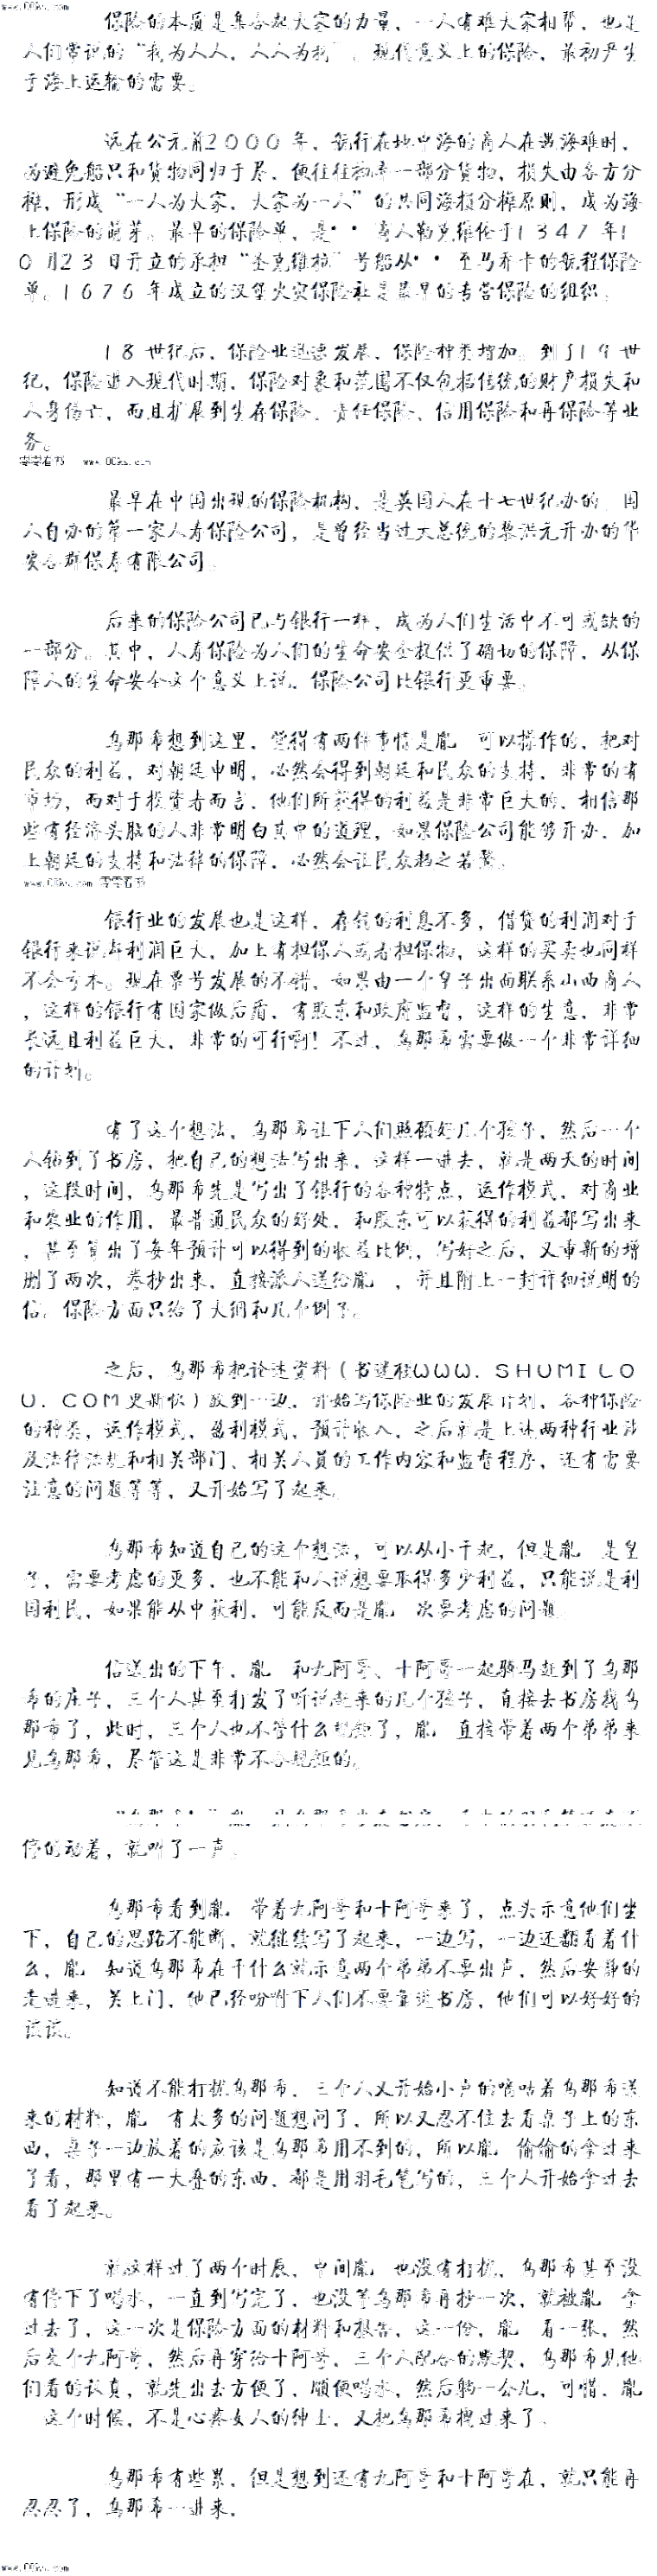 www.00ks.com
保险的本质是集合起大家的力量，一人有难大家相帮，也是
人们常说的“我为人人，人人为我”。现代意义上的保险，最初产生
于海上运输的需要。
远在公元前2000年，航行在地中海的商人在遇海难时，
为避免船只和货物同归于尽，便往往抛弃一部分货物，损失由各方分
摊，形成“一人为大家，大家为一人”的共同海损分摊原则，成为海
上保险的萌芽。最早的保险单，是··商人勒克维伦于1347年1
0月23日开立的承担“圣克维拉”号船从··至马乔卡的航程保险
单。1676年成立的汉堡火灾保险社是最早的专营保险的组织。
18世纪后，保险业迅速发展，保险种类增加。到了19世
纪，保险进入现代时期，保险对象和范围不仅包括传统的财产损失和
人身伤亡，而且扩展到生存保险、责任保险、信用保险和再保险等业
务。
零零看书 www.00ks.com
最早在中国出现的保险机构，是英国人在十七世纪办的，国
人自办的第一家人寿保险公司，是曾经当过大总统的黎洪元开办的华
安合群保寿有限公司。
后来的保险公司已与银行一样，成为人们生活中不可或缺的
一部分。其中，人寿保险为人们的生命安全提供了确切的保障，从保
障人的生命安全这个意义上说，保险公司比银行更重要。
乌那希想到这里，觉得有两件事情是胤 可以操作的，把对
民众的利益，对朝廷申明，必然会得到朝廷和民众的支持，非常的有
市场，而对于投资者而言，他们所获得的利益是非常巨大的，相信那
些有经济头脑的人非常明白其中的道理，如果保险公司能够开办，加
上朝廷的支持和法律的保障，必然会让民众趋之若鹜。
www.00ks.com 零零看书
银行业的发展也是这样，存钱的利息不多，借贷的利润对于
银行来说却利润巨大，加上有担保人或者担保物，这样的买卖也同样
不会亏本。现在票号发展的不错，如果由一个皇子出面联系山西商人
，这样的银行有国家做后盾，有股东和政府监督，这样的生意，非常
长远且利益巨大，非常的可行啊！不过，乌那希需要做一个非常详细
的计划。
有了这个想法，乌那希让下人们照顾好几个孩子，然后一个
人钻到了书房，把自己的想法写出来，这样一进去，就是两天的时间
，这段时间，乌那希先是写出了银行的各种特点，运作模式，对商业
和农业的作用，最普通民众的好处，和股东可以获得的利益都写出来
，甚至算出了每年预计可以得到的收益比例，写好之后，又重新的增
删了两次，誊抄出来，直接派人送给胤 ，并且附上一封详细说明的
信，保险方面只给了大纲和几个例子。
之后，乌那希把论述资料（书迷楼WWW．SHUMILO
U．COM更新快）放到一边，开始写保险业的发展计划，各种保险
的种类，运作模式，盈利模式，预计收入，之后就是上述两种行业涉
及法律法规和相关部门、相关人员的工作内容和监督程序，还有需要
注意的问题等等，又开始写了起来。
乌那希知道自己的这个想法，可以从小干起，但是胤 是皇
子，需要考虑的更多，也不能和人说想要取得多少利益，只能说是利
国利民，如果能从中获利，可能反而是胤 次要考虑的问题。
信送出的下午，胤 和九阿哥、十阿哥一起骑马赶到了乌那
希的庄子，三个人甚至打发了听说起来的几个孩子，直接去书房找乌
那希了，此时，三个人也不管什么规矩了，胤 直接带着两个弟弟来
见乌那希，尽管这是非常不合规矩的。
停的动着，就叫了一声。
乌那希看到胤 带着九阿哥和十阿哥来了，点头示意他们坐
下，自己的思路不能断，就继续写了起来，一边写，一边还翻看着什
么，胤 知道乌那希在干什么就示意两个弟弟不要出声，然后安静的
走进来，关上门，他已经吩咐下人们不要靠近书房，他们可以好好的
谈谈。
知道不能打扰乌那希，三个人又开始小声的嘀咕着乌那希送
来的材料，胤 有太多的问题想问了，所以又忍不住去看桌子上的东
西，桌子一边放着的应该是乌那希用不到的，所以胤 偷偷的拿过来
了看，那里有一大叠的东西，都是用羽毛笔写的，三个人开始拿过去
看了起来。
就这样过了两个时辰，中间胤 也没有打扰，乌那希甚至没
有停下了喝水，一直到写完了，也没等乌那希再抄一次，就被胤 拿
过去了，这一次是保险方面的材料和报告，这一份，胤 看一张，然
后交个九阿哥，然后再穿给十阿哥，三个人配合的默契，乌那希见他
们看的认真，就先出去方便了，顺便喝水，然后躺一会儿，可惜，胤
 这个时候，不是心疼女人的绅士，又把乌那希拽过来了。
乌那希有些累，但是想到还有九阿哥和十阿哥在，就只能再
忍忍了，乌那希一进来，
www.00ks.com